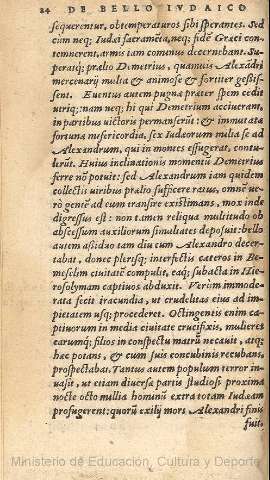 24 DE BELLO IVDAICO
sequerentur, obtemperaturos sibi sperantes. Sed
cùm neq; Iudæi sacramēta, neq; fidē Græci con-
temnerent, armis tam comminus decernebant. Su-
peratq; prælio Demetrius, quamuis Alexādri
mercenarij multa & animose & fortiter gessis-
sent. Euentus autem pugnæ præter spem cedit
utriq; nam neq; hi qui Demetrium acciuerant,
in partibus uictoris permanserūt: & immutata
fortuna misericordia, sex Iudæorum milia se ad
Alexandrum, qui in montes effugerat, contu-
lerūt. Huius inclinationis momentū Demetrius
ferre nō potuit: sed Alexandrum iam quidem
collectis uiribus prælio sufficere ratus, omnē ue-
rò gentē ad eum transire existimans, mox inde
digressus est: non tamen reliqua multitudo ob
abscessum auxiliorum simultates deposuit: bello
autem assiduo tam diu cum Alexandro decer-
tabat, donec plerisq; interfectis cæteros in Be-
meselim ciuitatē compulit, eaq; subacta in Hie-
rosolymam captiuos abduxit. Verùm immode-
rata fecit iracundia, ut crudelitas eius ad im-
pietatem usq; procederet. Octingenis enim ca-
ptiuorum in media ciuitate crucifixis, mulieres
earumq; filios in conspectu matrū necauit, atq;
hæc potans, & cum suis concubinis recubans,
prospectabat. Tantus autem populum terror in-
uasit, ut etiam diuersæ partis studiosi proxima
nocte octo millia hominū extra totam Iudæam
profugerent: quorū exilij mors Alexandri finis
fuit.
Ministerio de Educación, Cultura y Deporte